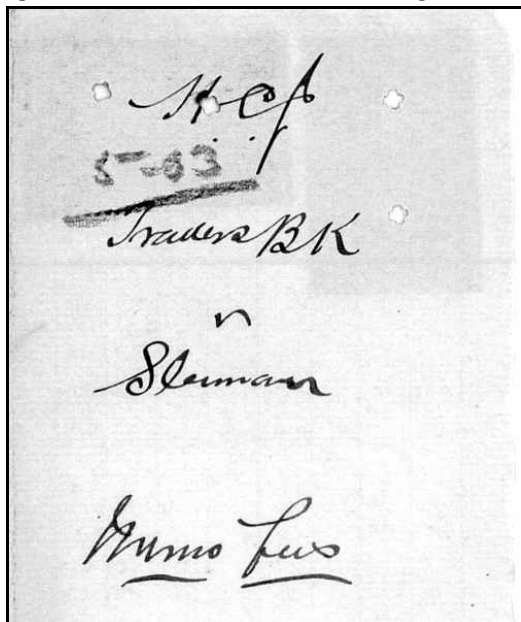 H C J
5-83
Traders BK
v
Sleumann
Memo fees